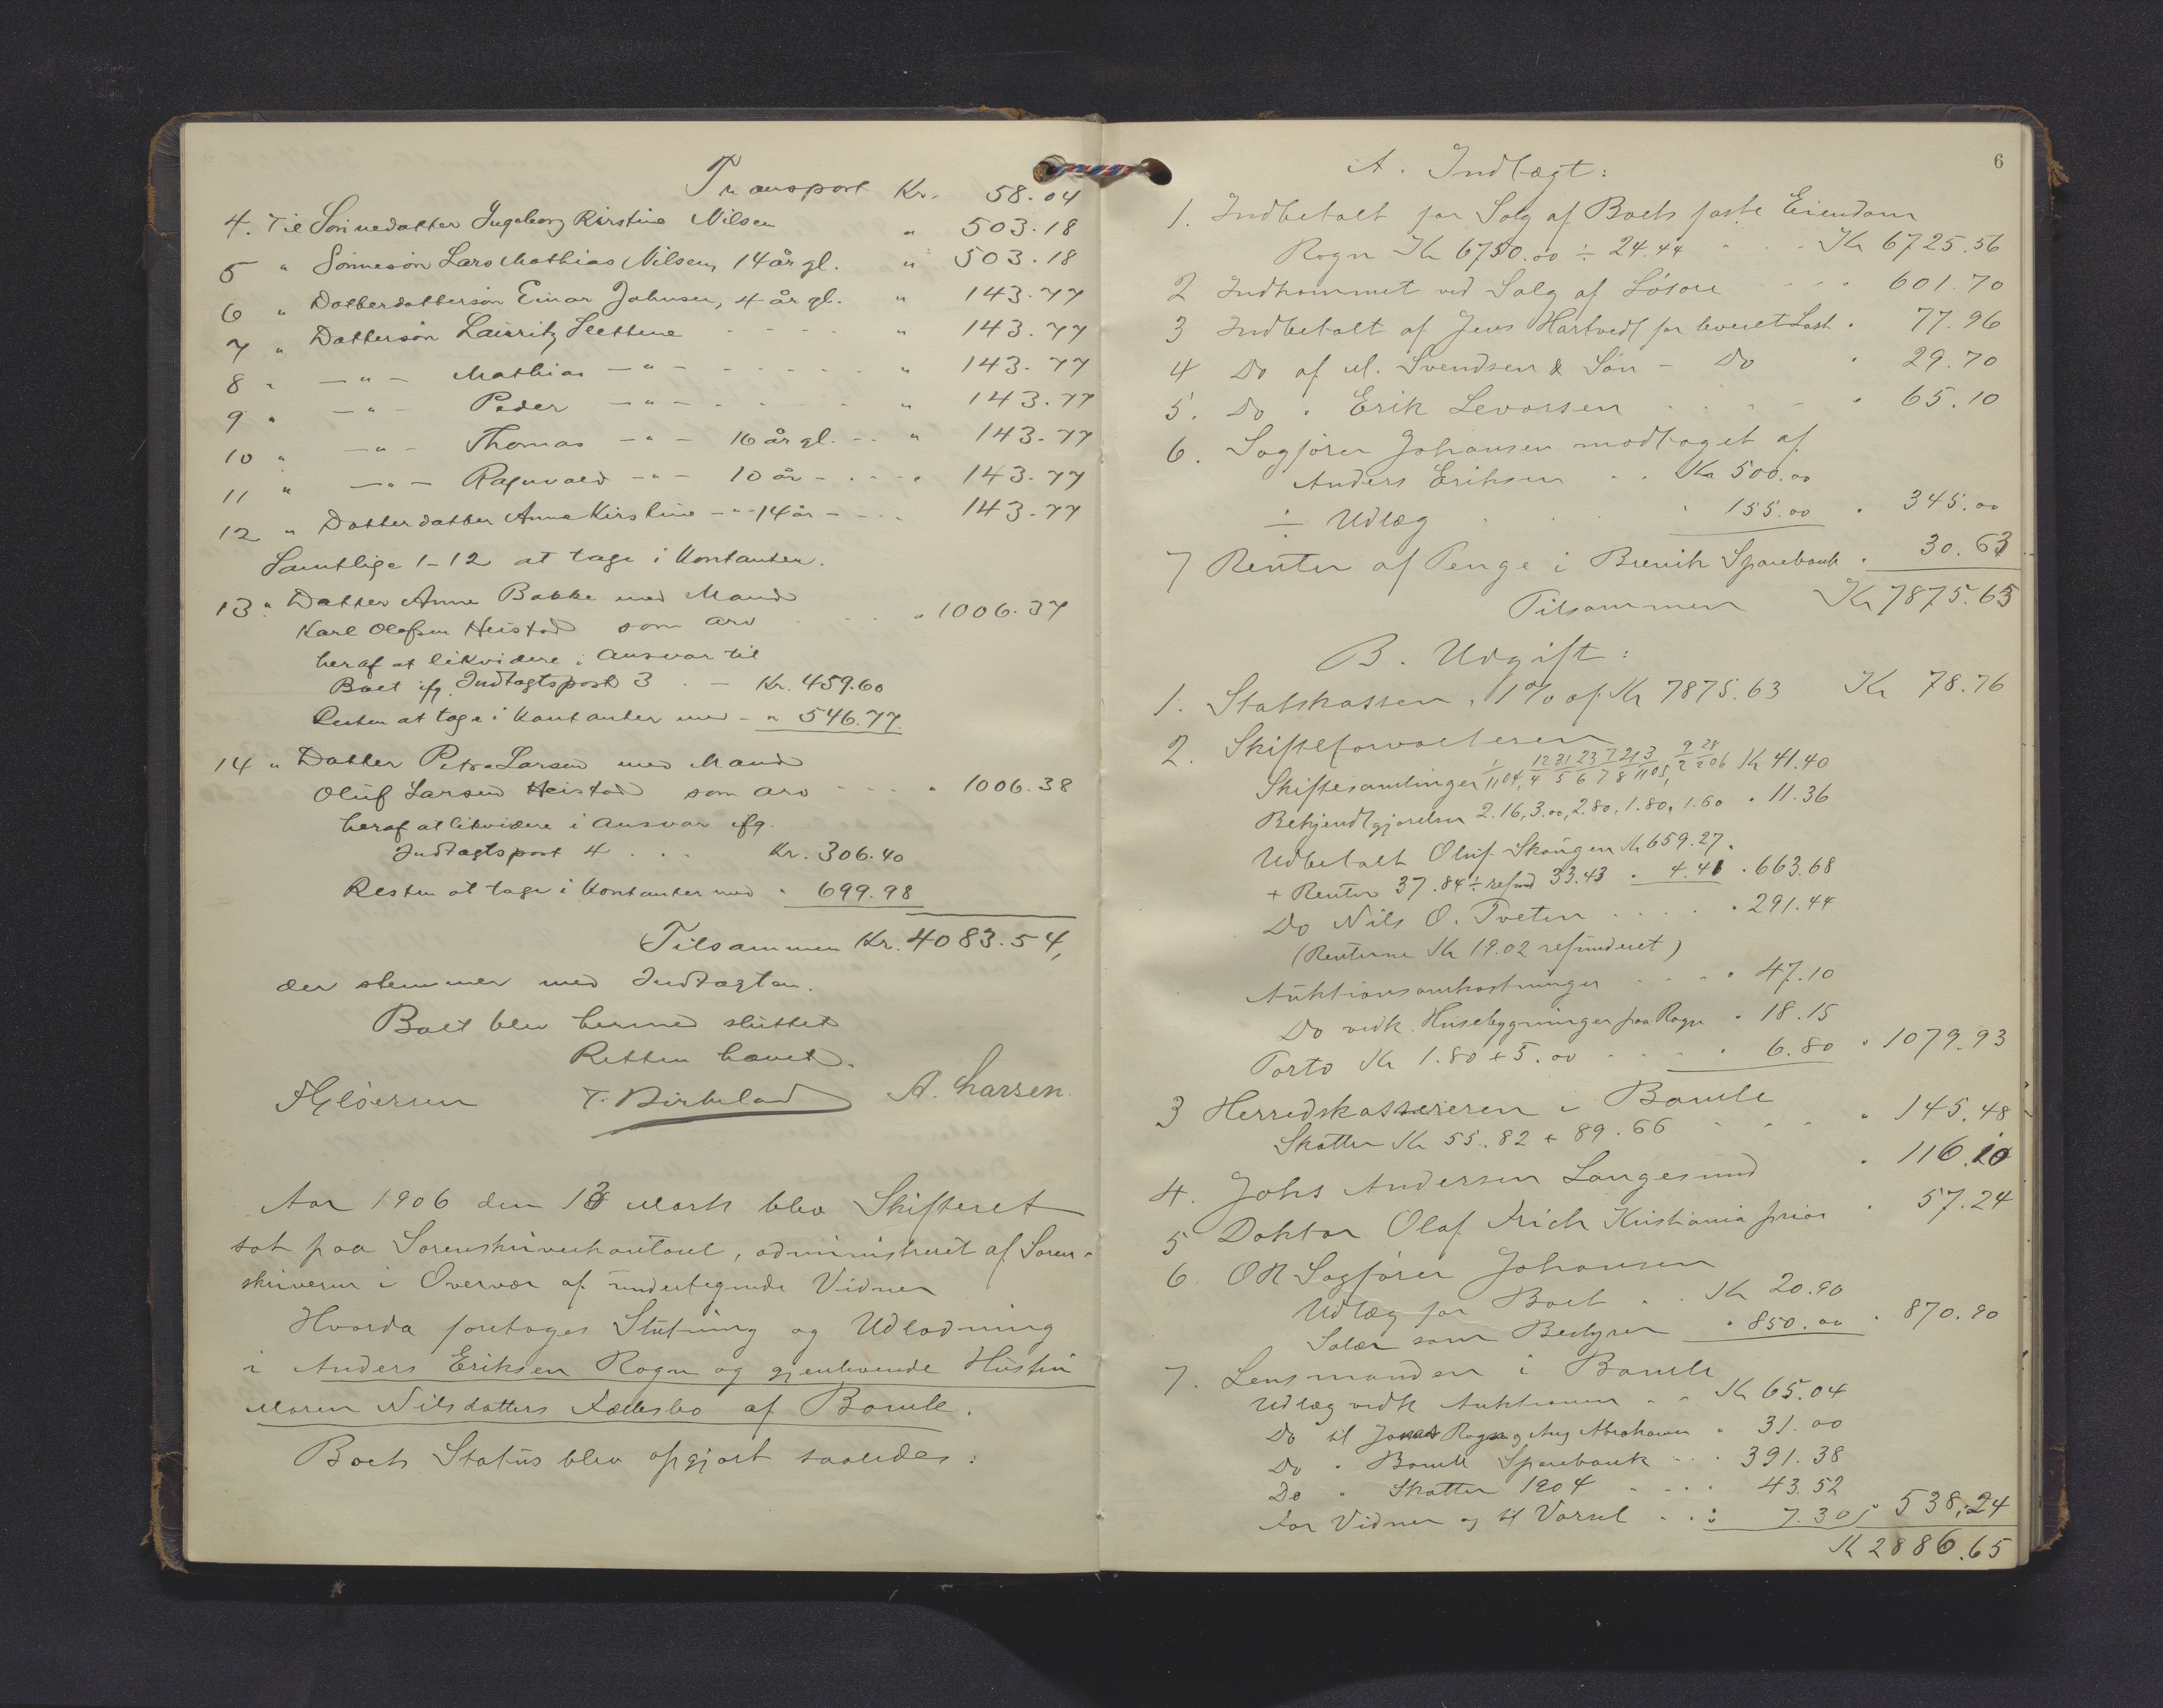 Transport Kr. 58.04
4. Til Sønnedatter Ingeborg Kirstine Nilsen " 503.18
5 " Sønnesøn Lars Mathias Nilsen, 14 år gl. " 503.18
6 " Datterdattersøn Einar Johnsen, 4 år gl. " 143.77
7 " Dattersøn Lauritz Slettene - - - - " 143.77
8 " —"— Mathias —"— - - - - - " 143.77
9 " —"— Peder —"— - - - - " 143.77
10 " —"— Thomas —"— 16 år gl. - - " 143.77
11 " —"— Ragnvald —"— 10 år - - - " 143.77
12 " Datterdatter Anna Kirstine —"— 14 år - - - 143.77
Samtlige 1-12 at tage i Kontanter.
13 " Datter Anne Bakke med Mand
Karl Olafsen Heistad som arv - - - " 1006.37
heraf at likvidere i Ansvar til
Boet ifg. Indtægtspost 3 . — Kr. 459.60
Resten at tage i Kontanter med - " 546.77.
14 " Datter Petra Larsen med Mand
Oluf Larsen Heistad som arv - - - " 1006.38
heraf at likvidere i Ansvar ifg.
Indtægtspost 4 . . . Kr. 306.40
Resten at tage i Kontanter med " 699.98
Tilsammen Kr. 4083.54,
der stemmer med Indtægten.
Boet blev hermed sluttet
Retten hævet.
T. Birkeland A. Larsen.
Aar 1906 den 13 Marts blev Skifteret
sat paa Sorenskriverkontoret, administreret af Soren-
skriveren i Overvær af undertegnede Vidner
Hvorda foretoges Slutning og Udlodning
i Anders Eriksen Rogn og gjenlevende Hustru
Maren Nilsdatters Fællesbo af Bamle.
Boets Status blev opgjort saaledes:
6
A. Indtægt:
1. Indbetalt for Salg af Boets faste Eiendom
Rogn Kr 6750.00 ÷ 24.44 - - - Kr 6725.56
2 Indkommet ved Salg af Løsøre - - " 601.70
3 Indbetalt af Jens Hartvedt for leveret Last " 77.96
4 Do af M. Svendsen & Søn - Do " 29.70
5. Do " Erik Levorsen - - - - " 65.10
6. Sagfører Johansen modtaget af
Anders Eriksen - - Kr 500.00
÷ Udlæg - - - " 155.00 " 345.00
7 Renter af Penge i Brevik Sparebank " 30.63
Tilsammen Kr 7875.65
B. Udgift:
1. Statskassen, 1% af Kr 7875.63 Kr 78.76
2. Skifteforvalteren
Skiftesamlinger 1/11 04, 12/4 21/5 23/6 7/7 21/8 3/11 05, 9/2 28/2 06 Kr 41.40
Bekjendtgjørelser 2.16, 3.00, 2.80, 1.80, 1.60 " 11.36
Udbetalt Oluf Skougen Kr 659.27.
+ Renter 37.84 ÷ refund 33.43 " 4.41 " 663.68
Do Nils O. Tveten . . . . " 291.44
(Renterne Kr 19.02 refunderet)
Auktionsomkostninger - - - " 47.10
Do vedk. Husebygninger paa Rogn " 18.15
Porto Kr 1.80 + 5.00 - - - " 6.80 " 1079.93
3 Herredskassereren i Bamle
Skatter Kr 55.82 + 89.66 - - - " 145.48
4. Johs Andersen Langesund " 116.10
5 Doktor Olaf Frich Kristiania prior " 57.24
6. OR Sagfører Johansen
Udlæg for Boet - - Kr 20.90
Salær som Bestyrer " 850.00 " 870.90
7. Lensmanden i Bamle
Udlæg vedk Auktionen - - Kr 65.04
Do til Rogn og Aug Abrahamsen " 31.00
Do " Bamle Sparebank - - " 391.38
Do " Skatter 1904 - - - - 43.52
For Vidner og til Varsel - - : 7.30 " 538.24
Kr 2886.65